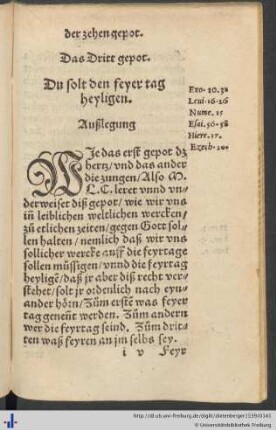 der zehen gepot.
Das Dritt gepot.
Du solt den feyer tag
heyligen.
Außlegung
Exo. 20. 31
Leui. 16. 26
Nume. 15
Esai. 56. 58
Hiere. 17.
Ezech. 20.
WJe das erst gepot dz
hertz/ vnd das ander
die zungen/ Also M.
L. C. leret vnnd vn
derweiset diß gepot/ wie wir vns
iñ leiblichen weltlichen wercken/
zů etlichen zeiten/ gegen Gott sol
len halten/ nemlich daß wir vns
sollicher werck auff die feyrtage
sollen müssigen/ vnnd die feyrtag
heyligẽ/ daß jr aber diß recht ver
stehet/ solt jr ordenlich nach eyn
ander hörn/ Zům erstẽ was feyer
tag genent werden. Zům andern
wer die feyrtag seind. Zům drit
ten waß feyren an jm selbs sey.
i v Feyr
http://dl.ub.uni-freiburg.de/diglit/dietenberger1539/0143
© Universitätsbibliothek Freiburg